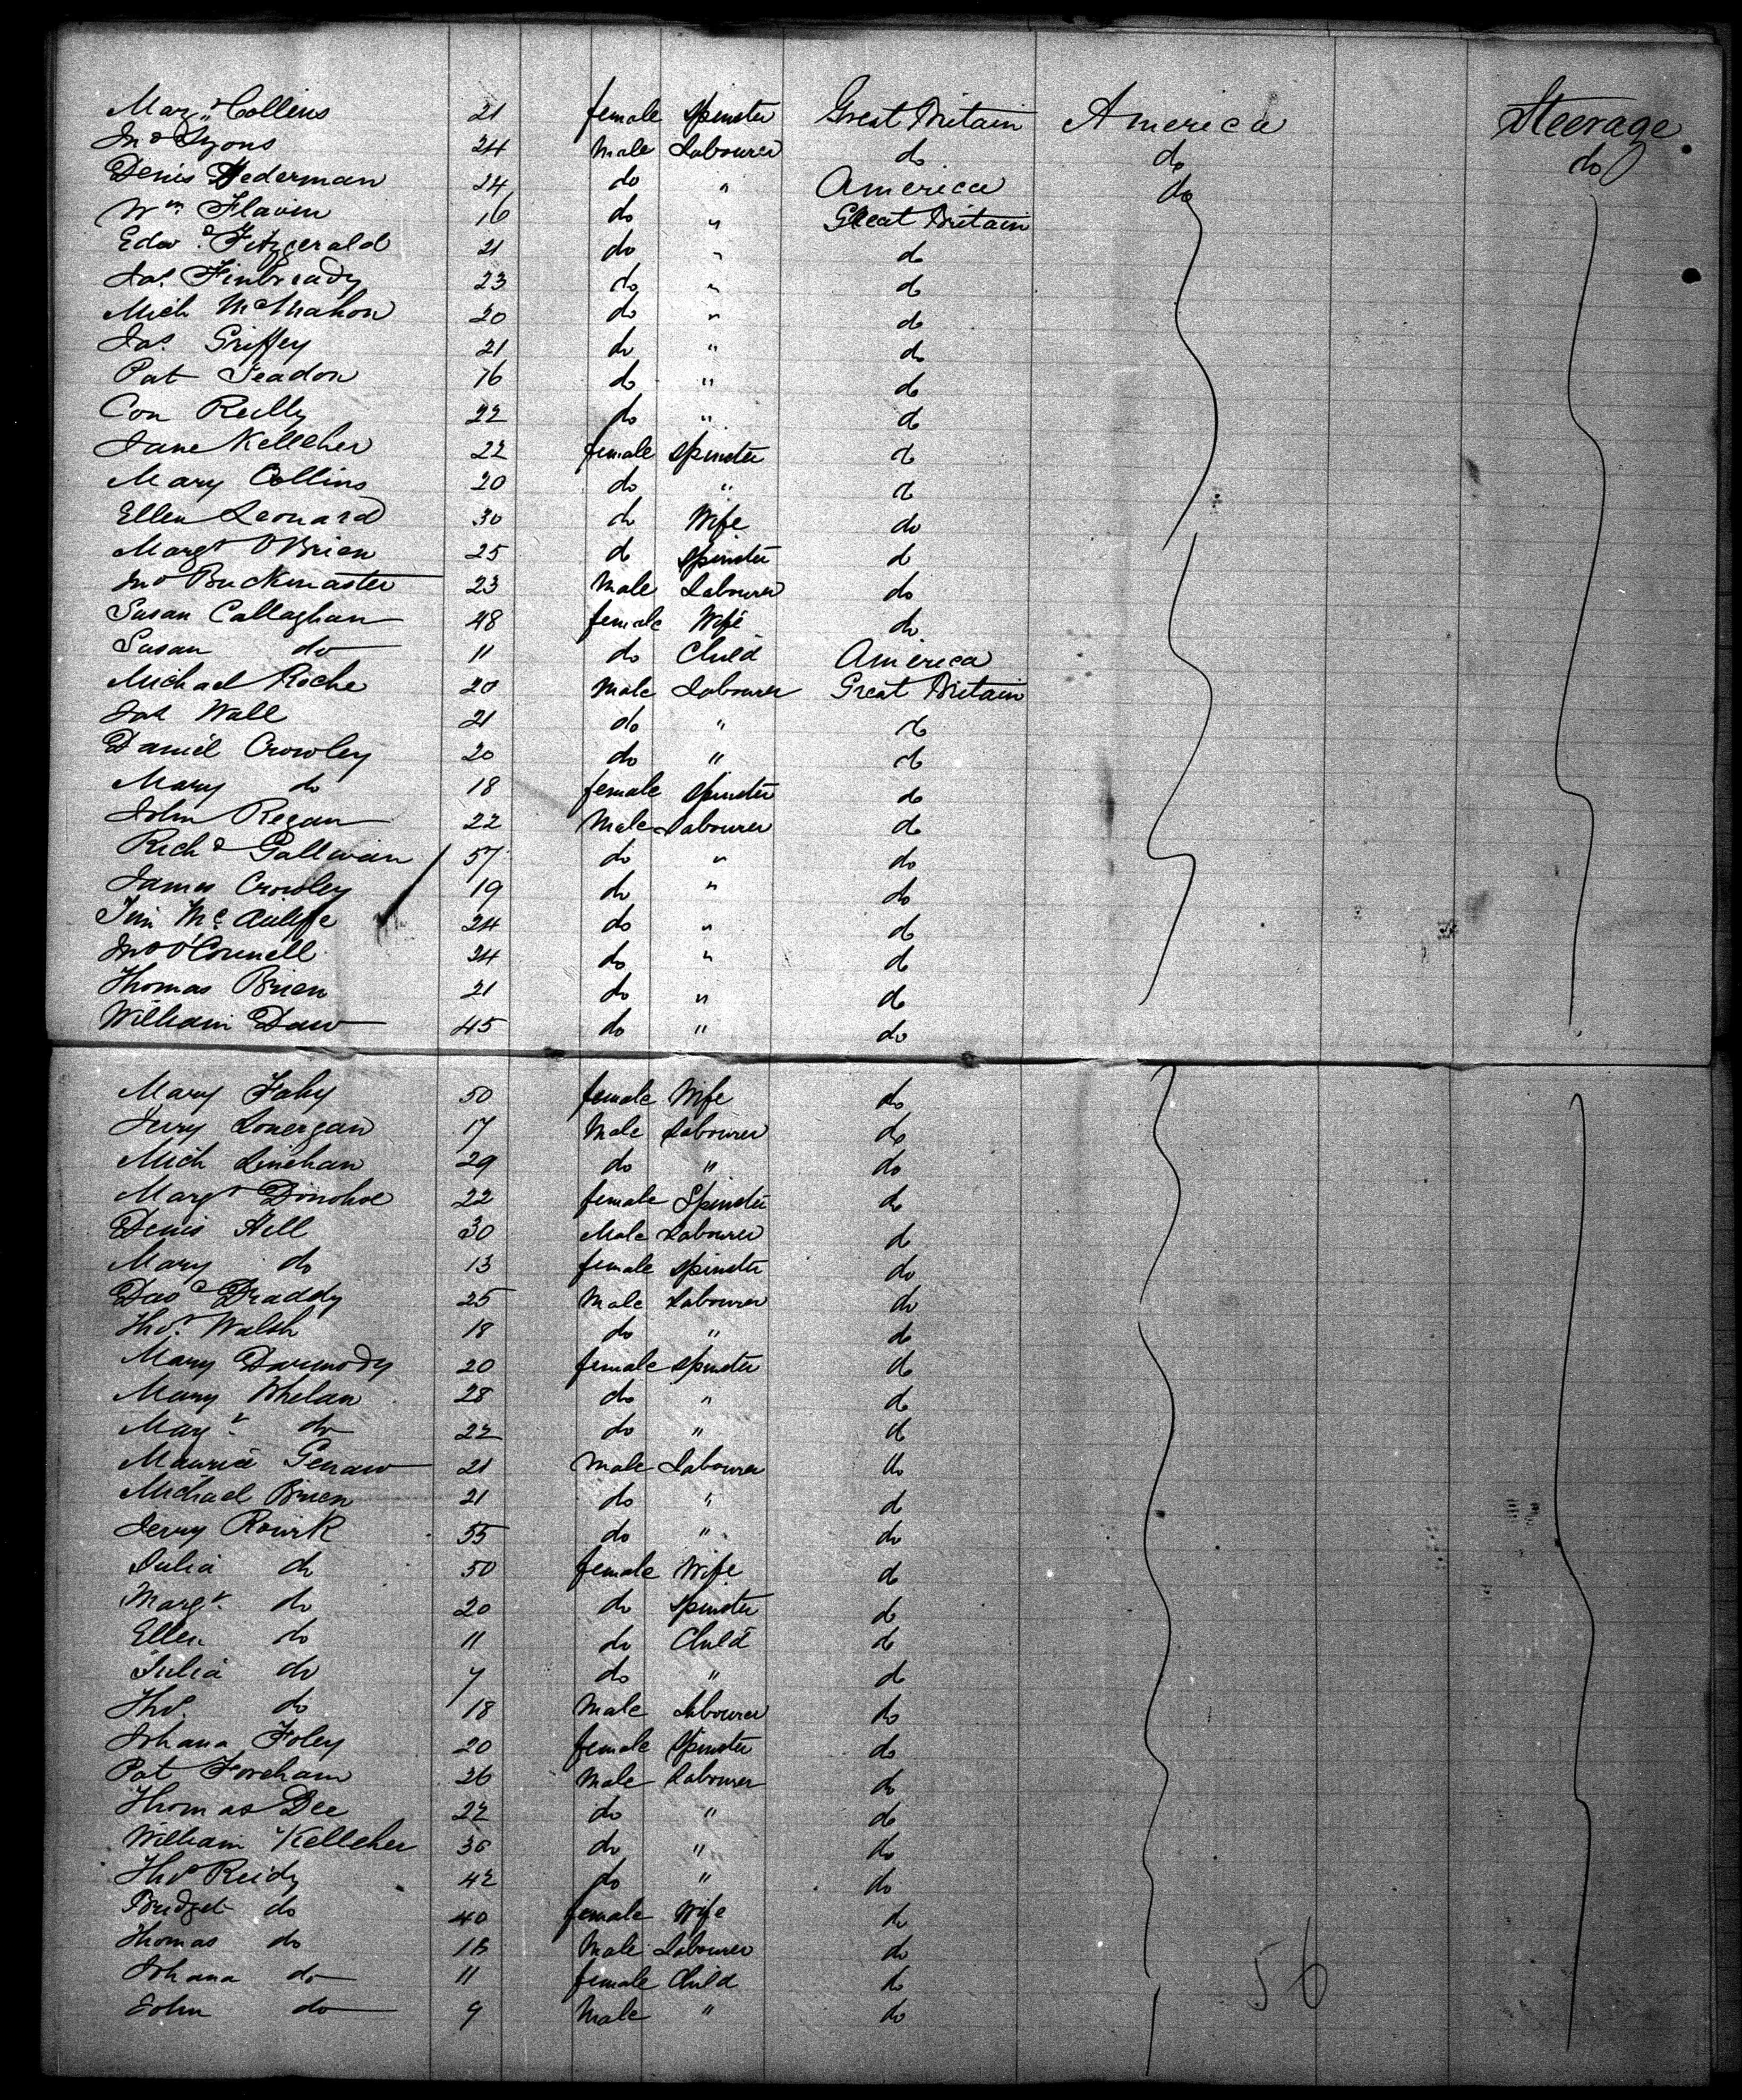 Mar. Collins 21 female Spinster Great Britain America Steerage
Jno Lyons 24 Male Labourer do do do
Denis Hederman 24 do " America do
Wm. Flavin 16 do " Great Britain
Edwd. Fitzgerald 21 do " do
Jas. 23 do " do
Mich McMahon 20 do " do
Jas. Griffey 21 do " do
Pat 16 do " do
Con Reilly 22 do " do
Jane Kelleher 22 female Spinster do
Mary Collins 20 do " do
Ellen Leonard 30 do Wife do
Margt O'Brien 25 do Spinster do
Jno Buckmaster 23 Male Labourer do
Susan Callaghan 48 female Wife do
Susan do 11 do Child America
Michael Roche 20 Male Labourer Great Britain
Jas Wall 21 do " do
Daniel Crowley 20 do " do
Mary do 18 female Spinster do
John Regan 22 Male Labourer do
Richd Gallwan 57 do " do
James Crowley 19 do " do
Tim McAuliffe 24 do " do
Jno O'Connell 24 do " do
Thomas Brien 21 do " do
William Daw 45 do " do
Mary Fahy 50 female Wife do
Jerry Lonergan 17 Male Labourer do
Mich Linehan 29 do " do
Margt Donohoe 22 female Spinster do
Denis Hill 30 Male Labourer do
Mary do 13 female Spinster do
Draddy 25 Male Labourer do
Thos. Walsh 18 do " do
Mary Darmody 20 female Spinster do
Mary Whelan 28 do " do
Margt. do 22 do " do
Maurice 21 Male Labourer do
Michael Brien 21 do " do
Jerry Rourk 55 do " do
Julia do 50 female Wife do
Margt. do 20 do Spinster do
Ellen do 11 do Child do
Julia do 7 do " do
Thos. do 18 Male Labourer do
Johana Foley 20 female Spinster do
Pat Foreham 26 Male Labourer do
Thomas Dee 22 do " do
William Kelleher 36 do " do
Thos Reidy 42 do " do
Bridget do 40 female Wife do
Thomas do Male Labourer do
Johana do 11 female Child do
John do 9 Male " do
56